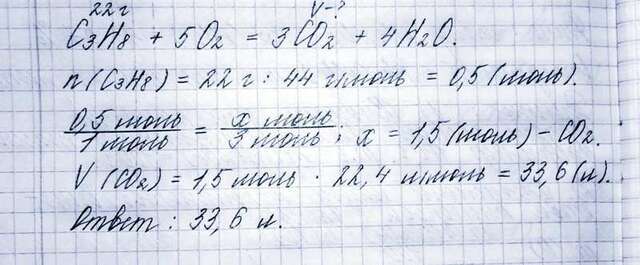 22 г V-?
C3H8 + 5O2 = 3CO2 + 4H2O.
n(C3H8) = 22 г : 44 г/моль = 0,5 (моль).
0,5 моль/1 моль = x моль/3 моль; x = 1,5 (моль) - CO2.
V(CO2) = 1,5 моль · 22,4 л/моль = 33,6 (л).
Ответ: 33,6 л.